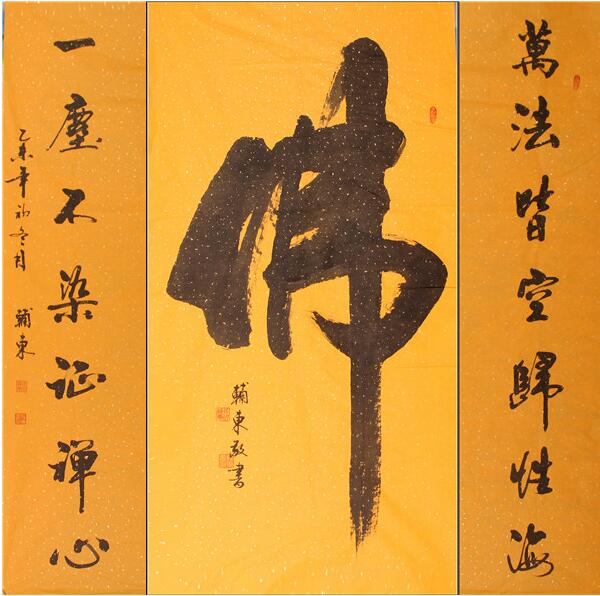 萬法皆空歸性海
佛
輔東敬書
一塵不染証禪心
乙未年初冬月 輔東